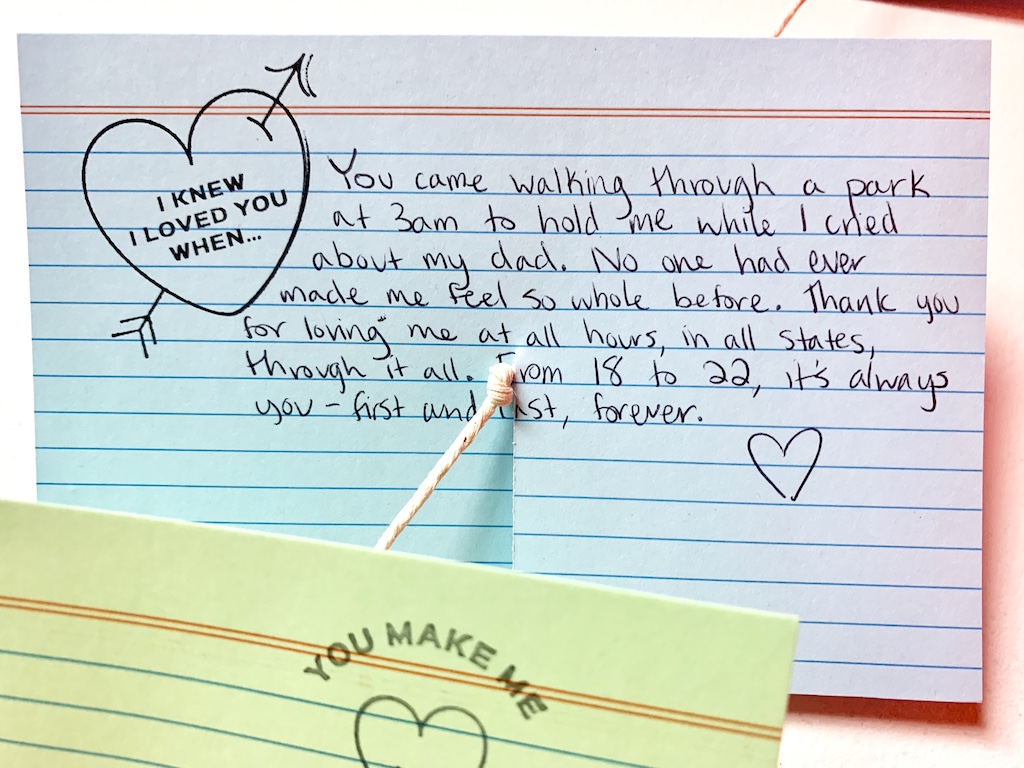 I KNEW
I LOVED YOU
WHEN...
You came walking through a park
at 3am to hold me while I cried
about my dad. No one had ever
made me feel so whole before. Thank you
for loving me at all hours, in all states,
through it all. From 18 to 22, it's always
you – first and last, forever.
YOU MAKE ME